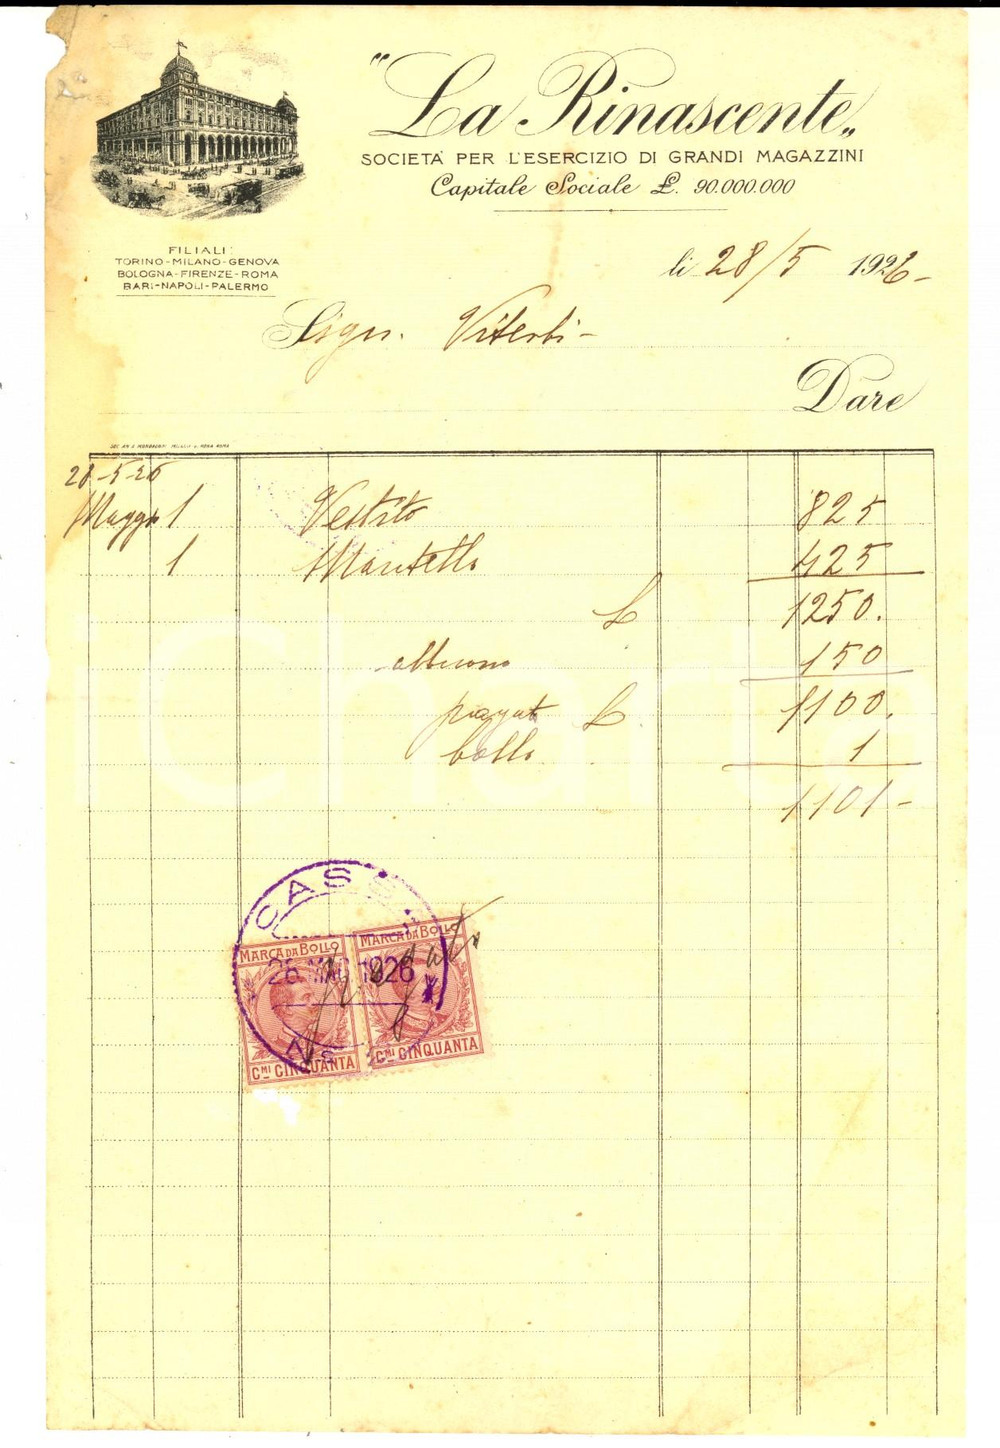 "La Rinascente„
SOCIETA' PER L'ESERCIZIO DI GRANDI MAGAZZINI
Capitale Sociale £. 90.000.000
FILIALI:
TORINO-MILANO-GENOVA
BOLOGNA-FIRENZE-ROMA
BARI-NAPOLI-PALERMO
li 28/5 1926-
Sign. Viterbi-
Dare
28-5-26
Maggio 1 Vestito 825
1 Mantello 425
L 1250.
abbuono 150
pagato L. 1100.
bollo 1
1101-
CASSA
MARCA DA BOLLO MARCA DA BOLLO
28 MAG 1926
pagato
Cmi CINQUANTA Cmi CINQUANTA